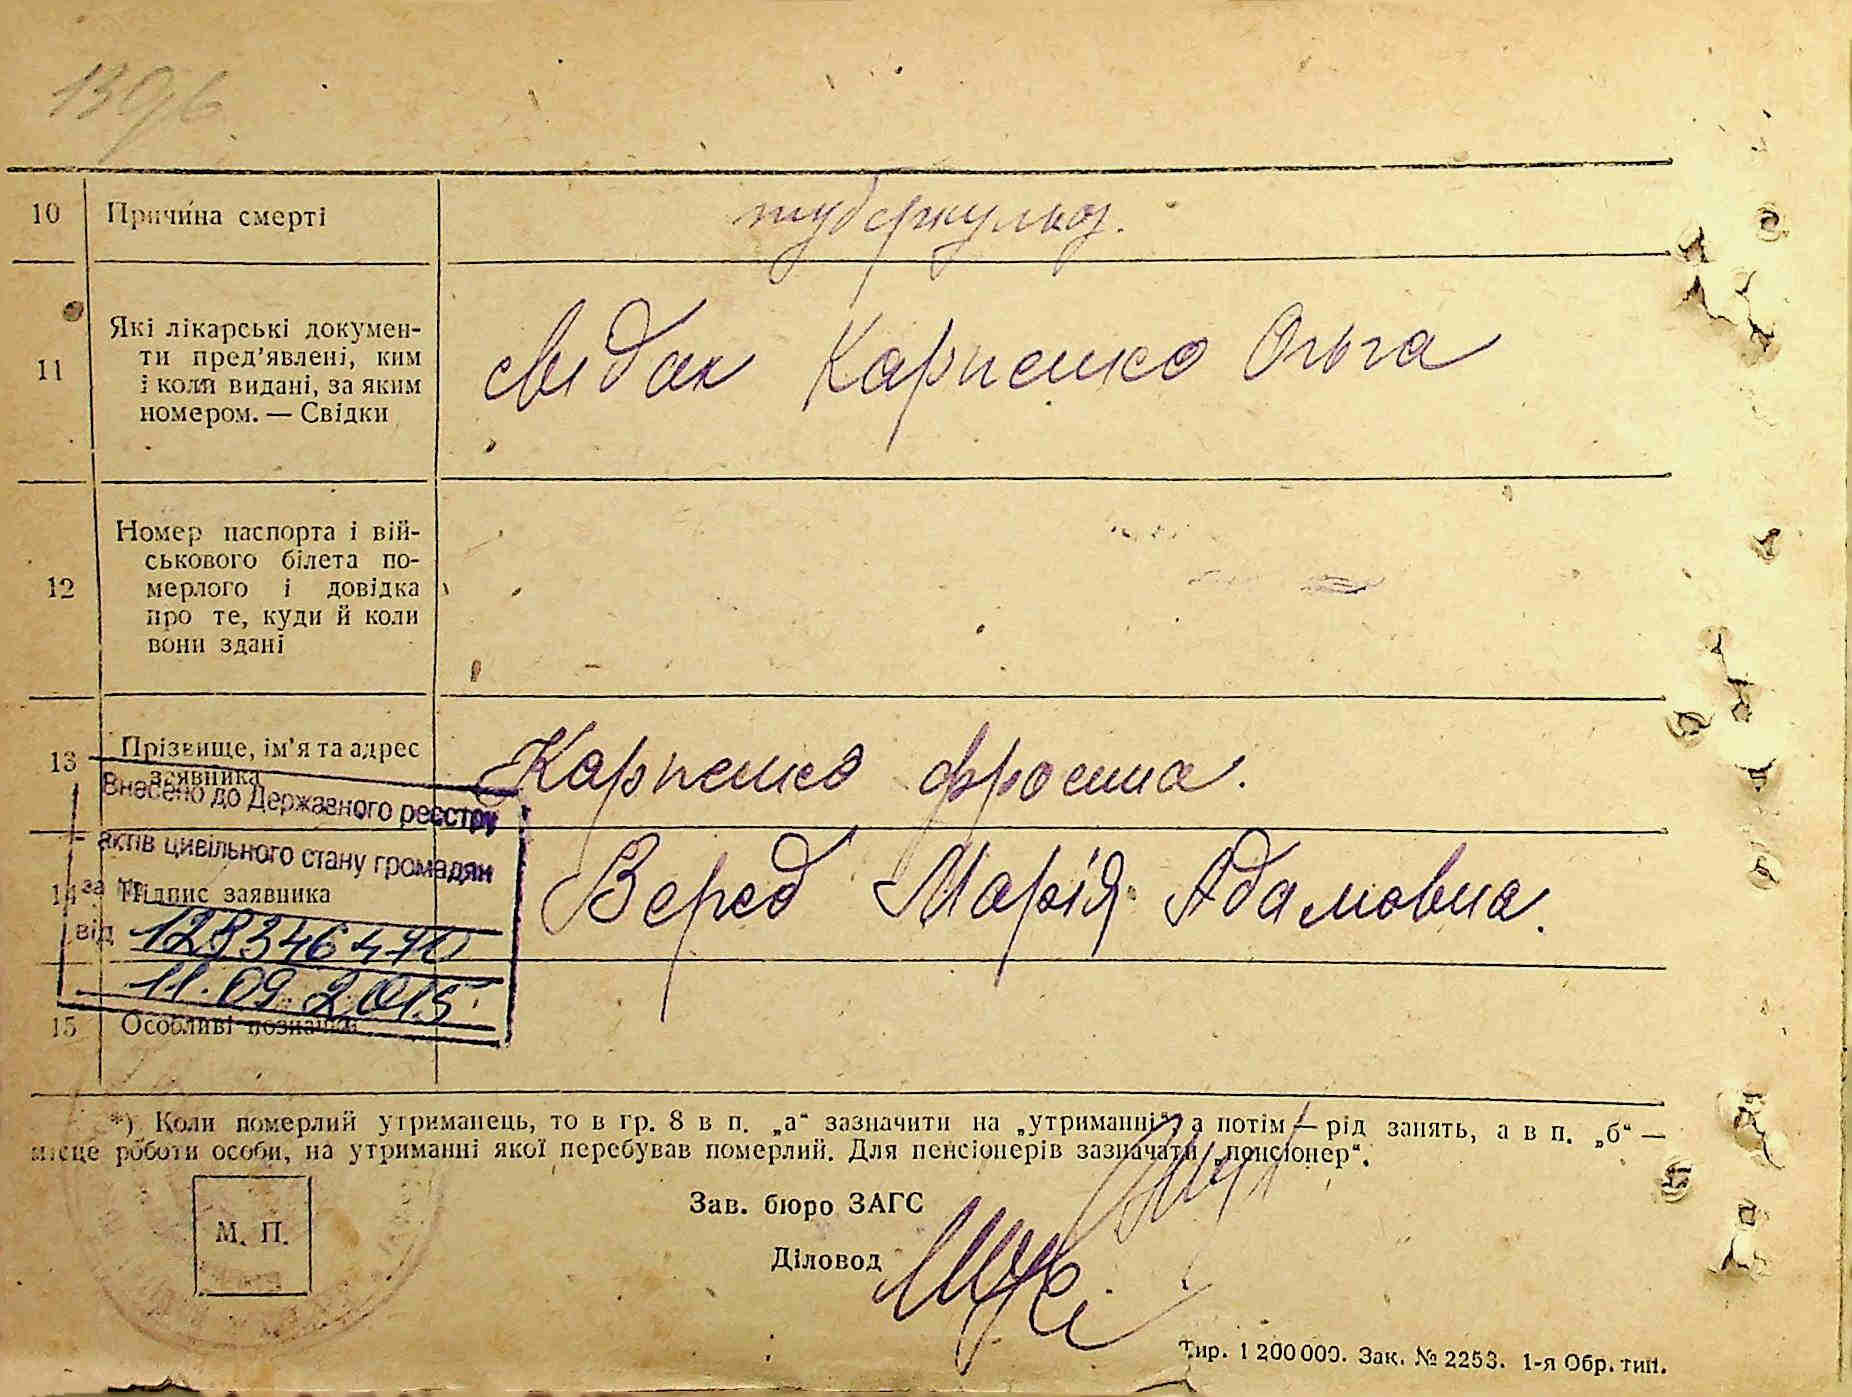 1396
10 Причина смерті туберкульоз.
11 Які лікарські докумен-
ти пред'явлені, ким
і коли видані, за яким
номером. — Свідки
свідак Карпенко Ольга
12 Номер паспорта і вій-
ськового білета по-
мерлого і довідка
про те, куди й коли
вони здані
13 Прізвище, ім'я та адрес
заявника
Карпенко Фросина.
Внесено до Державного реєстру
актів цивільного стану громадян
14 Підпис заявника
Веред Марія Адамовна.
за №
від 12834647
11.09.2015
15 Особливі позначки
*) Коли померлий утриманець, то в гр. 8 в п. „а“ зазначити на „утриманні“ а потім — рід занять, а в п. „б“ —
місце роботи особи, на утриманні якої перебував померлий. Для пенсіонерів зазначати „пенсіонер“.
Зав. бюро ЗАГС
М. П.
Діловод
Тир. 1 200 000. Зак. № 2253. 1-я Обр. тип.